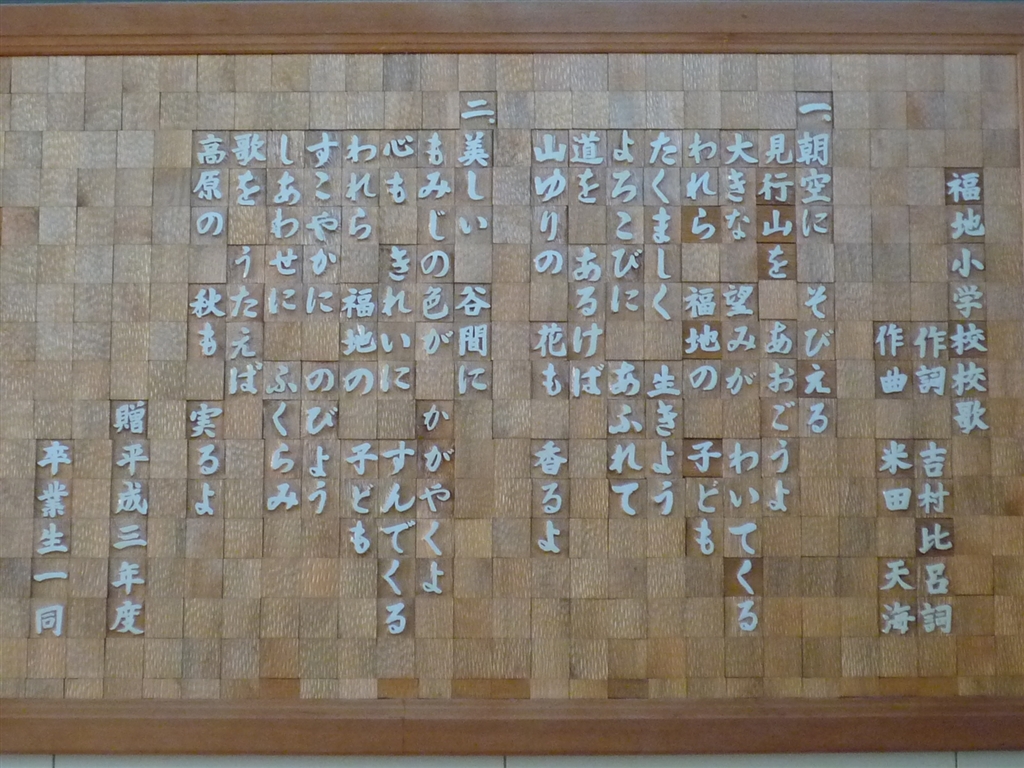 福地小学校校歌
作詞 吉村比呂詞
作曲 米田天海
一、朝空に そびえる
見行山を あおごうよ
大きな 望みが わいてくる
われら 福地の 子ども
たくましく 生きよう
よろこびに あふれて
道を あるけば
山ゆりの 花も 香るよ
二、美しい 谷間に
もみじの色が かがやくよ
心も きれいに すんでくる
われら 福地の 子ども
すこやかに のびよう
しあわせに ふくらみ
歌を うたえば
高原の 秋も 実るよ
贈平成三年度
卒業生一同